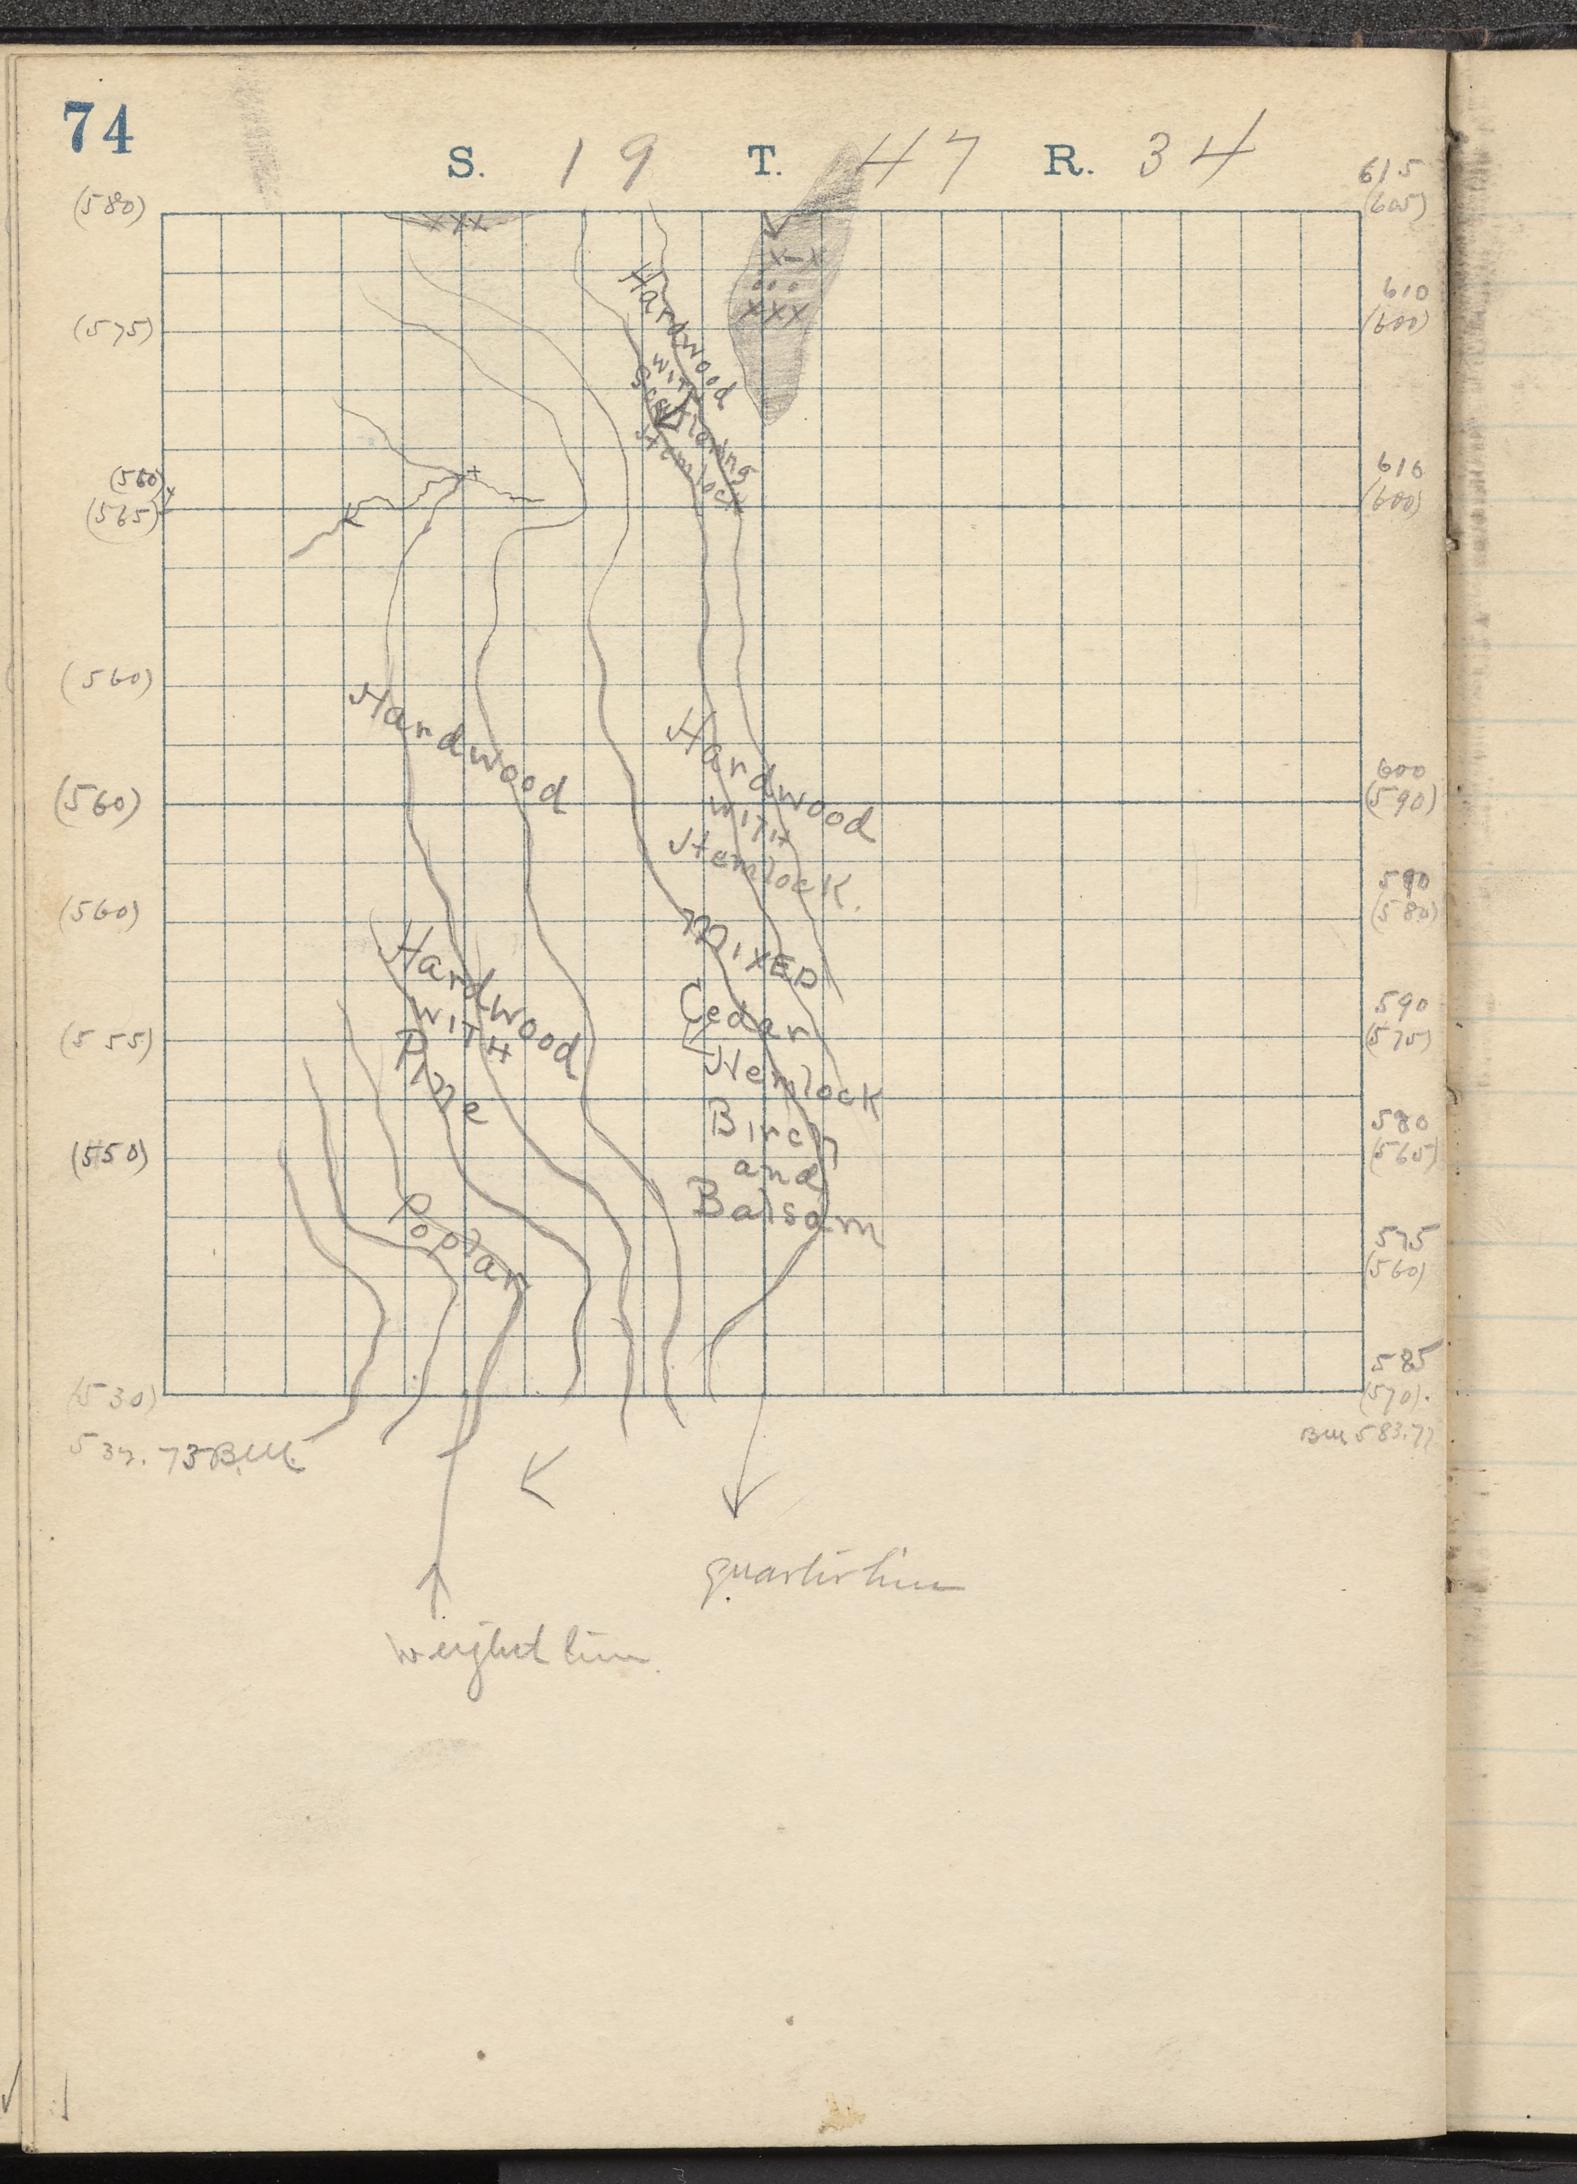 74
S. 19 T. 47 R. 34
(580)
615
(605)
XXX
x-x
...
xxx
Hardwood
WITH
Scattering
Hemlock
(575)
610
(600)
(560)
(565)
610
(600)
(560)
Hardwood
Hardwood
WITH
Hemlock.
(560)
600
(590)
(560)
590
(580)
MIXED
Hardwood
WITH
Pine
Cedar
Hemlock
Birch
and
Balsam
(555)
590
(575)
(550)
580
(565)
Poplar
575
(560)
(530)
585
(570).
B.M.
BM 583.77
quarter line
weight line